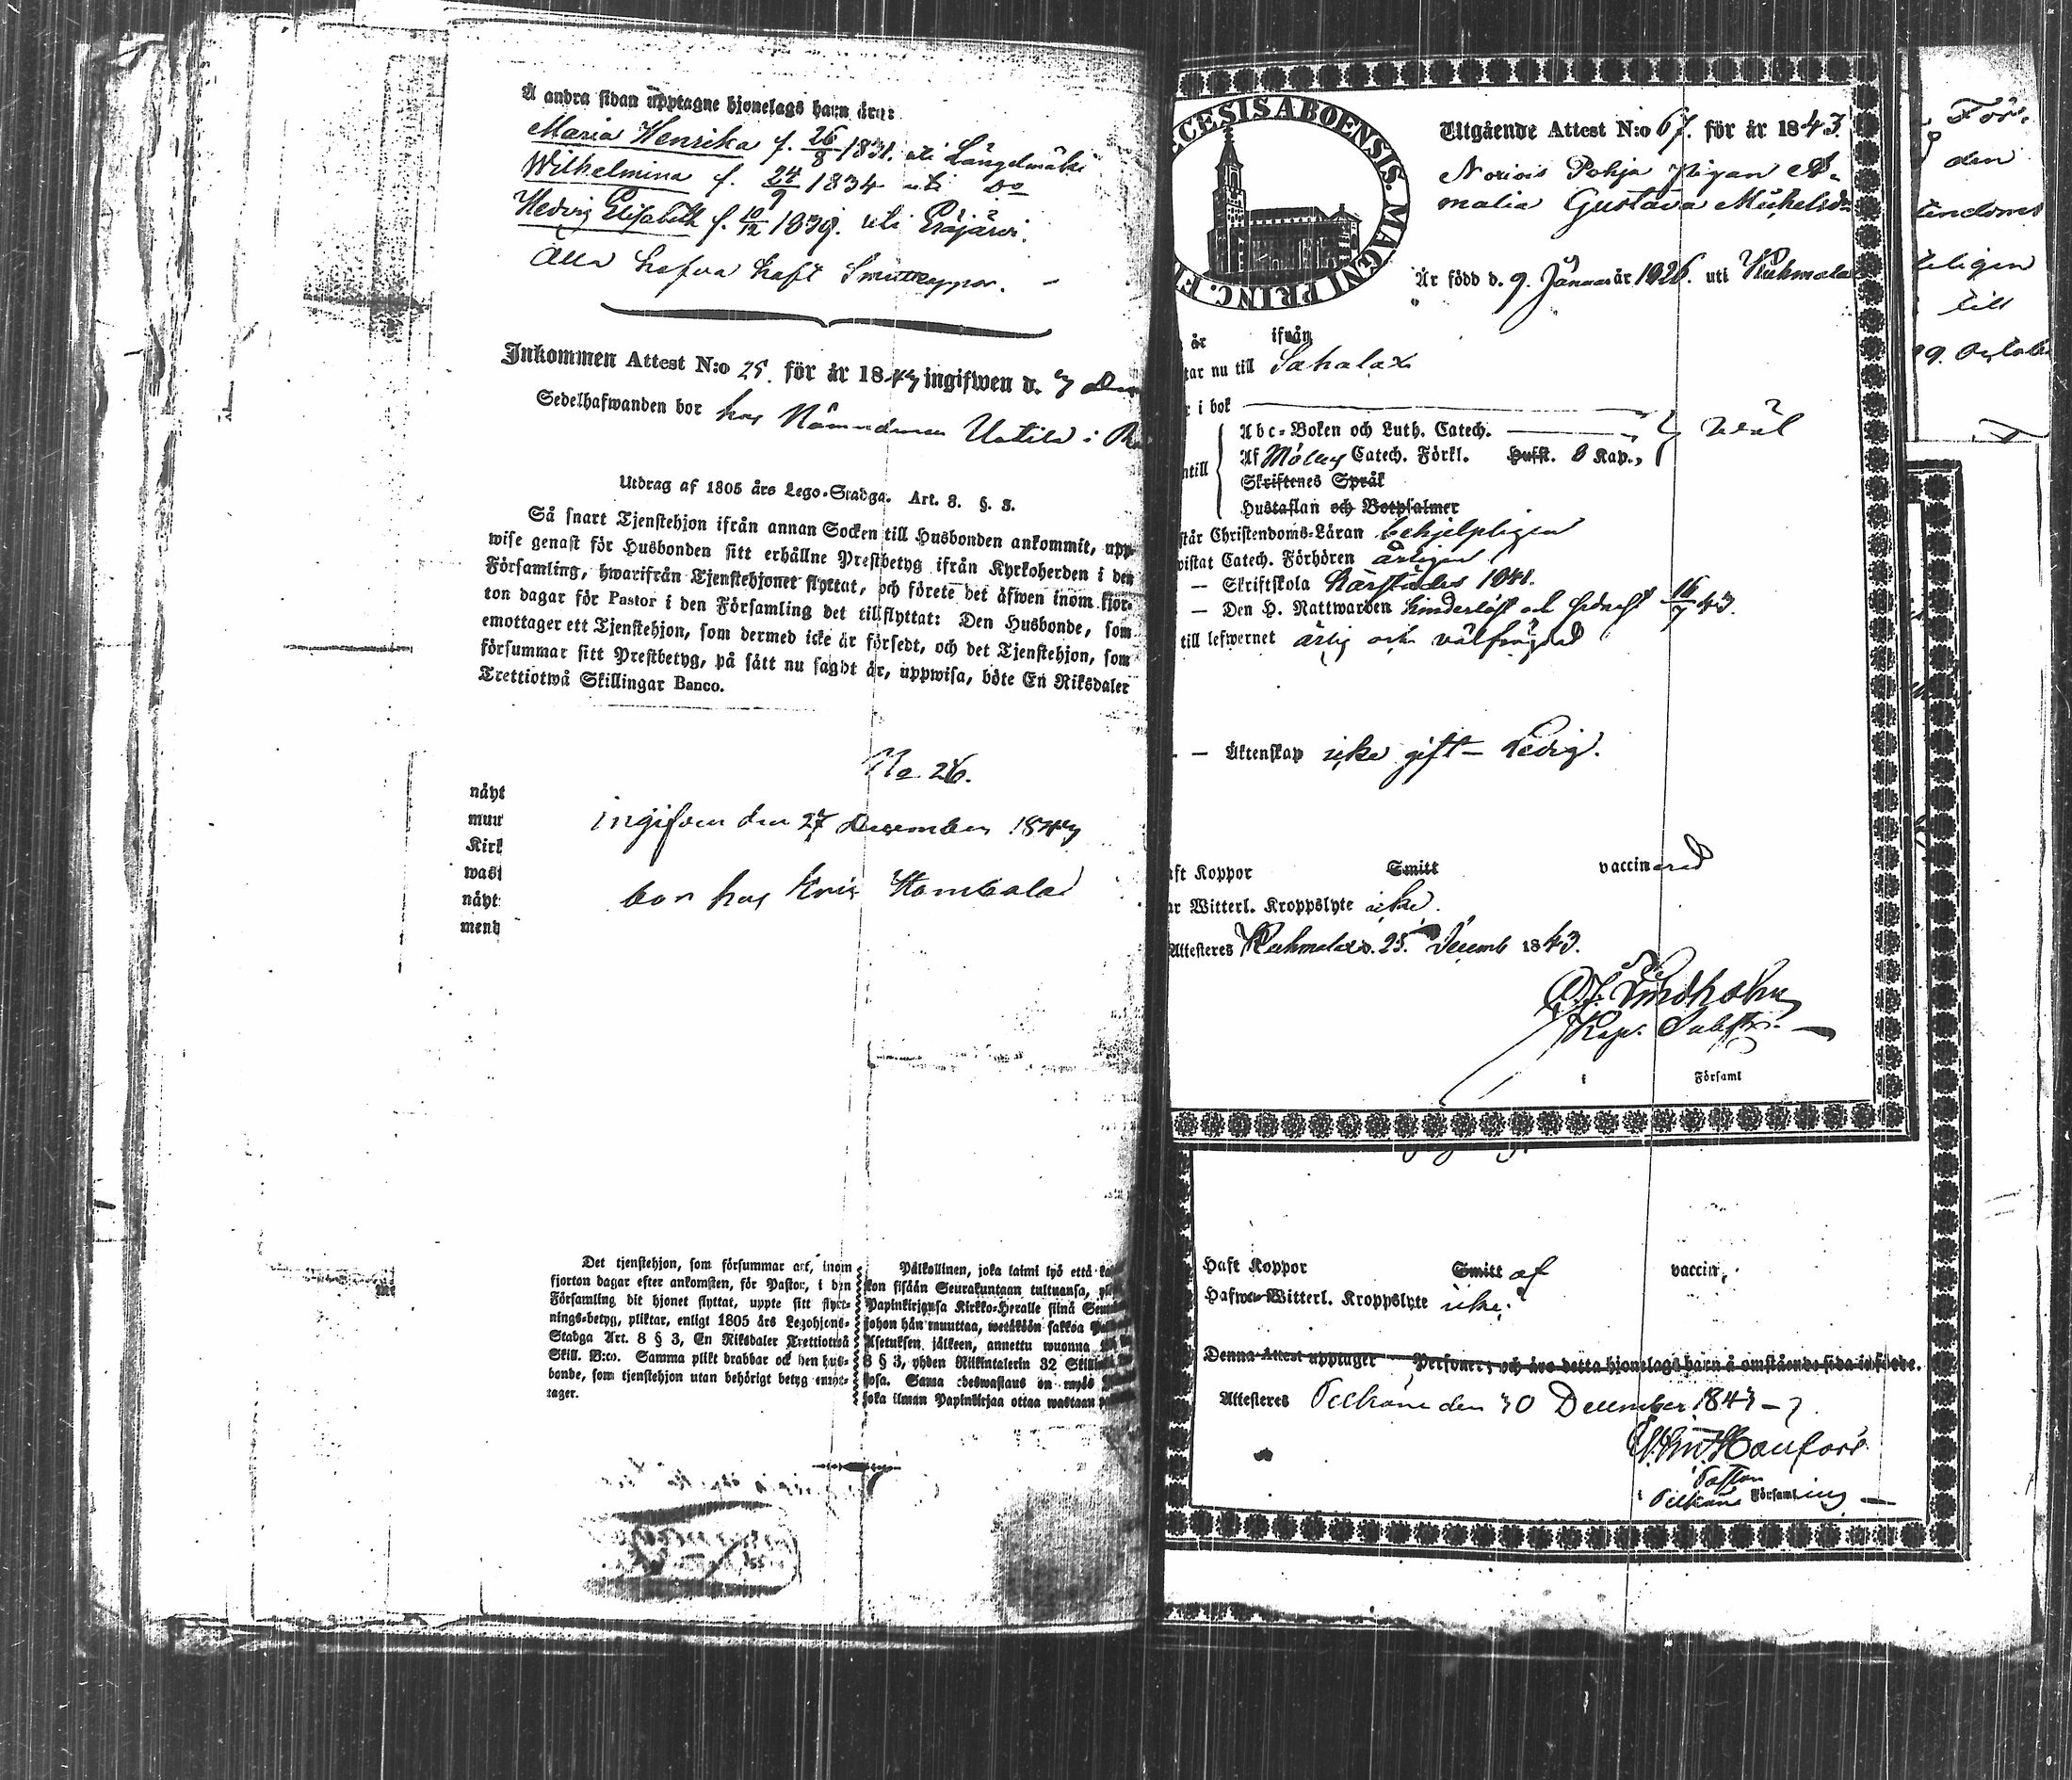 Å andra sidan upptagne hjonelags barn äro:
Maria Henrika f. 26/8 1831. uti Längelmäki
Wilhelmina f. 24/9 1834 uti do
Hedvig Elisabeth f. 10/12 1839. uti Eräjärvi.
Alla hafva haft Smittkoppor. –
Inkommen Attest N:o 25. för år 1843 ingifwen d.
Sedelhafwanden bor hos Nämndeman Uotila i
Utdrag af 1805 års Lego-Stadga. Art. 8. §. 3.
Så snart Tjenstehjon ifrån annan Socken till Husbonden ankommit, upp-
wise genast för Husbonden sitt erhållne Prestbetyg ifrån Kyrkoherden i den
Församling, hwarifrån Tjenstehjonet flyttat, och förete det äfwen inom fjor-
ton dagar för Pastor i den Församling det tillflyttat: Den Husbonde, som
emottager ett Tjenstehjon, som dermed icke är försedt, och det Tjenstehjon, som
försummar sitt Prestbetyg, på sätt nu sagdt är, uppwisa, böte En Riksdaler
Trettiotwå Skillingar Banco.
No. 26.
ingifven den 27 December 1843
bor hos
näyt
muu
Kirk
wast
näyt
meny
Det tjenstehjon, som försummar att, inom
fjorton dagar efter ankomsten, för Pastor, i den
Församling dit hjonet flyttat, uppte sitt flytt-
nings-betyg, pliktar, enligt 1805 års Legohjons-
Stadga Art. 8 § 3, En Riksdaler Trettiotwå
Skill. B:co. Samma plikt drabbar ock den hus-
bonde, som tjenstehjon utan behörigt betyg emot-
tager.
Pälkollinen, joka laimi lyö että
ton sisään Seurakuntaan tultuansa,
Papinkirjansa Kirkko-Heralle siinä
johon hän muuttaa, wetäköön sakkoa
Asetuksen jälkeen, annettu wuonna
8 § 3, yhden Riikintalerin 32
sosa. Sama edeswastaus on myös
joka ilman Papinkirjaa ottaa wastaan
CESIS ABOENSIS. MAGNI PRINC. F
Utgående Attest N:o 67. för år 1843.
Pohja Pigan A-
malia Gustava Michelsdr
Är född d. 9. Januar år 1826. uti Kuhmala
är ifrån
tar nu till Sahalax
i bok
Abc-Boken och Luth. Catech. väl
Af Catech. Förkl. Hufst. 8 Kap.,
ntill
Skriftenes Språk
Hustaflan och Botpsalmer
står Christendoms-Läran behjelpligen
vistat Catech. Förhören årligen
— Skriftskola härstädes 1841.
— Den H. Nattwarden hinderlöst och sednast 16/7 43.
till lefwernet ärlig och välfrägdad
– — Äktenskap icke gift – Ledig.
ft Koppor Smitt vaccinerad
ar Witterl. Kroppslyte icke.
Attesteres Kuhmalax d. 25. Decemb 1843.
Lindholm
Kap.
i Församl
Haft Koppor Smitt af vaccin,
Hafwa Witterl. Kroppslyte icke;
Denna Attest upptager Personer; och äro detta hjonelags barn å omstående sida införde.
Attesteres Pelkäne den 30 December 1843 –
Pastor
i Pelkäne Församling —
För-
den
tendoms
ligen
till